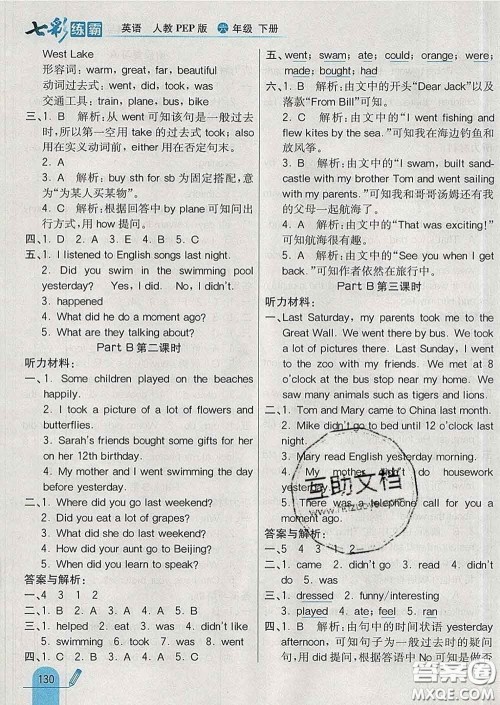 七彩练霸 英语 人教PEP版 六年级 下册
West Lake
形容词:warm, great, far, beautiful
动词过去式:went, did, took, was
交通工具:train, plane, bus, bike
三、1. B 解析:从 went 可知该句是一般过去
时,所以第一空用 take 的过去式 took;also
用在实义动词前,either 用在否定句末。
2. A
3. A 解析:buy sth for sb 为固定搭配,意
为“为某人买某物”。
4. C 解析:根据回答中 by plane 可知问出
行方式,用 how 提问。
四、1. D 2. A 3. E 4. B 5. C
五、1. I listened to English songs last night.
2. Did you swim in the swimming pool
yesterday? Yes, I did. No, I didn't.
3. happened
4. What did he do a moment ago?
5. What are they talking about?
Part B 第二课时
听力材料:
一、1. Some children played on the beaches
happily.
2. I took a picture of a lot of flowers and
butterflies.
3. Sarah's friends bought some gifts for her
on her 12th birthday.
4. My mother and I went swimming the day
before yesterday.
二、1. Where did you go last weekend?
2. Did you eat a lot of grapes?
3. What did you do last weekend?
4. How did your aunt go to Beijing?
5. When did you learn to speak?
答案与解析:
一、4 3 1 2
二、1. A 2. B 3. B 4. A 5. A
三、1. helped 2. eat 3. was 4. didn't like
5. swimming 6. went 7. did 8. took
四、1. C 2. B 3. A 4. B 5. C
130
五、went; swam; ate; could; was; did; are;
made; bought; had
六、1. B 解析:由文中的开头“Dear Jack”以及
落款“From Bill”可知。
2. C 解析:由文中的“I went fishing and
flew kites by the sea.”可知我在海边钓鱼和
放风筝。
3. A 解析:由文中的“I swam, built sand-
castle with my brother Tom and went sailing
with my parents.”可知我和哥哥汤姆还有我
的父母一起航海了。
4. C 解析:由文中的“That was exciting!”
可知航海很有趣。
5. A 解析:由文中的“See you when I get
back.”可知作者依然在旅行中。
Part B 第三课时
听力材料:
一、Last Saturday, my parents took me to the
Great Wall. We went there by bus. There
were lots of people. Last Sunday, I went
to the zoo with my friends. We met at 8
o'clock at the bus stop near my home. We
saw many animals such as tigers and lions.
二、1. Tom and Mary came to China last month.
2. Mike didn't go to bed until 12 o'clock last
night.
3. Mary read English yesterday morning.
4. My mother didn't do housework
yesterday.
5. There was a telephone call for you a
moment ago.
答案与解析:
一、5 4 3 1 2
二、1. came 2. didn't go 3. read 4. didn't do
5. was
三、1. dressed 2. funny/interesting
3. played 4. ate; fell 5. ran
四、1. B 解析:由句中的时间状语 yesterday
afternoon,可知句子为一般过去时的疑问
句,用 did 提问,根据答语中 No 可知是做否
互助文档
答案圈
MXQE.COM